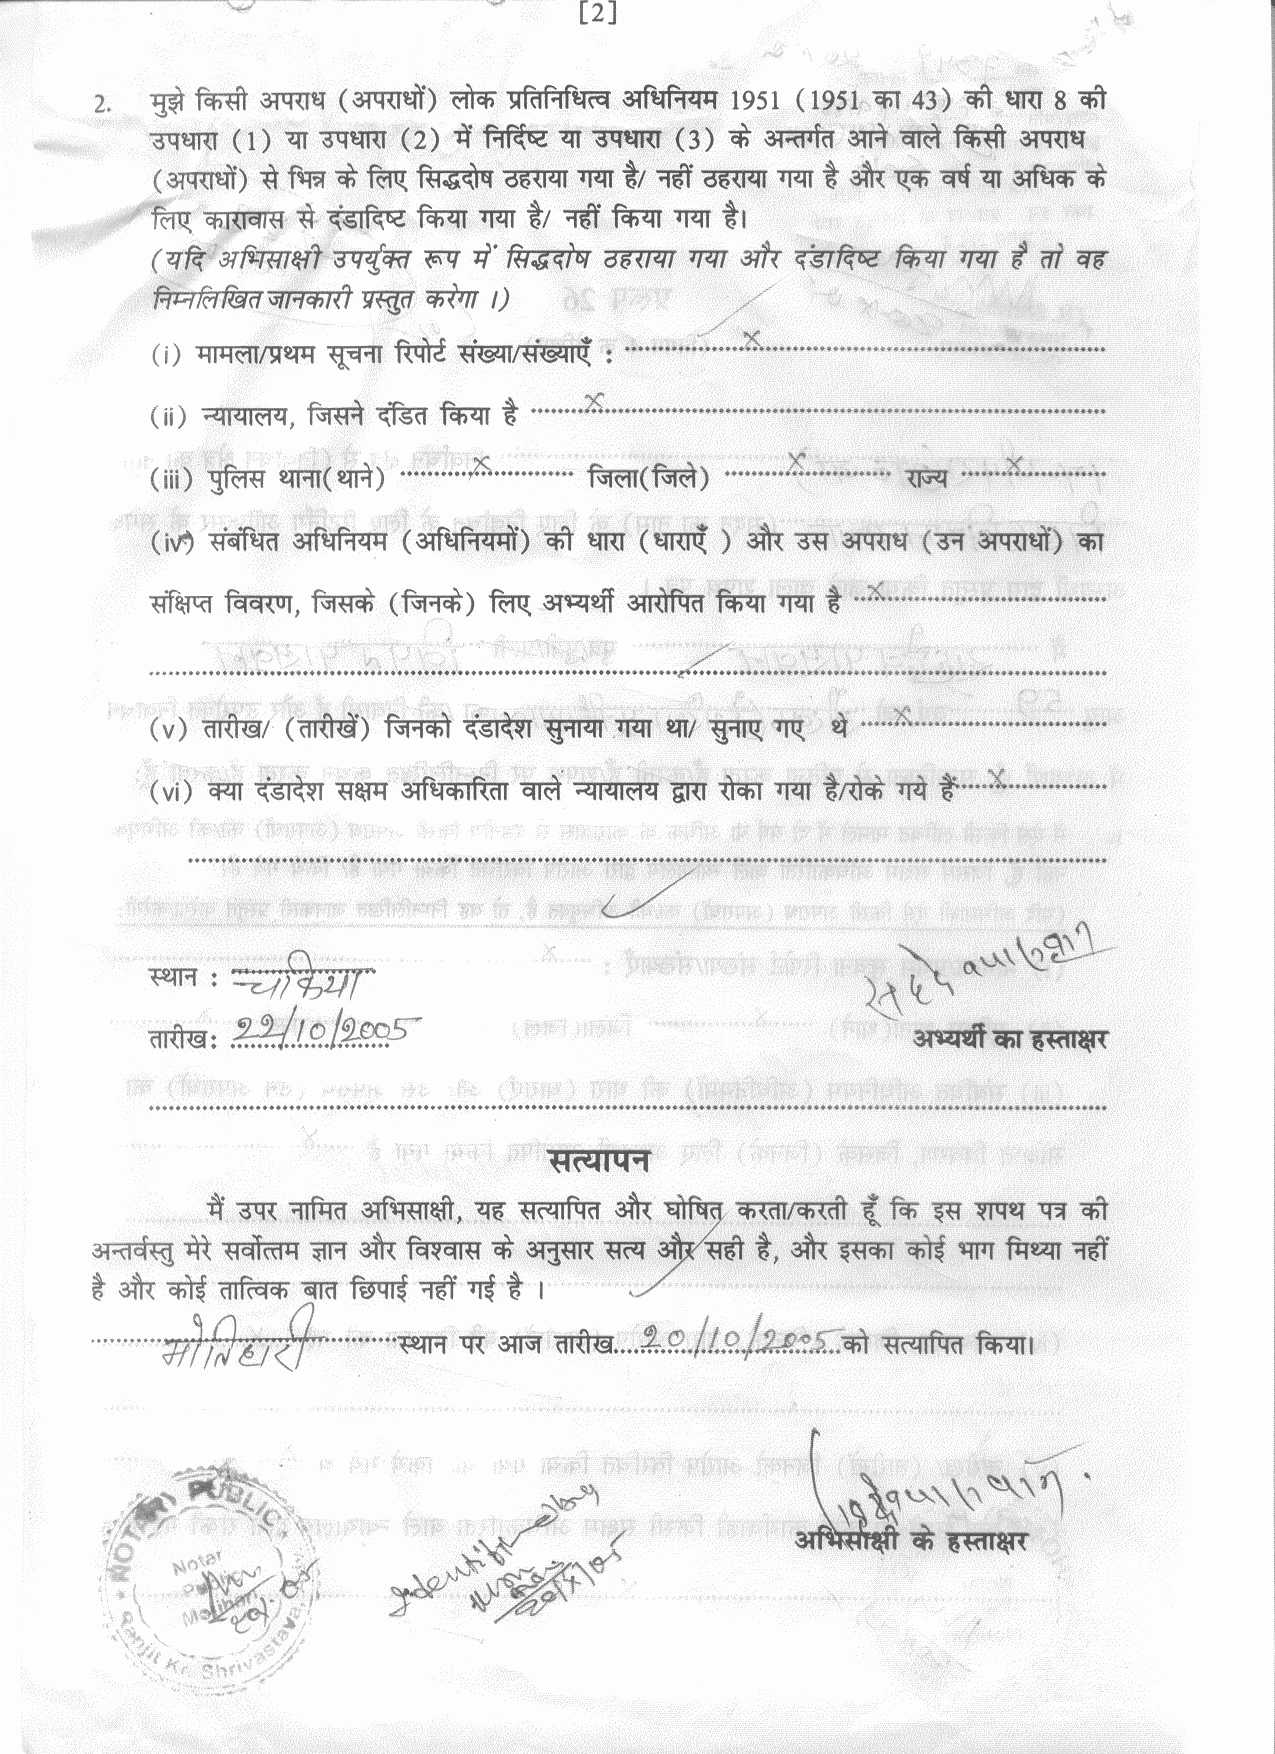 [2]
2. मुझे किसी अपराध (अपराधों) लोक प्रतिनिधित्व अधिनियम 1951 (1951 का 43) की धारा 8 की
उपधारा (1) या उपधारा (2) में निर्दिष्ट या उपधारा (3) के अन्तर्गत आने वाले किसी अपराध
(अपराधों) से भिन्न के लिए सिद्धदोष ठहराया गया है/ नहीं ठहराया गया है और एक वर्ष या अधिक के
लिए कारावास से दंडादिष्ट किया गया है/ नहीं किया गया है।
(यदि अभिसाक्षी उपर्युक्त रूप में सिद्धदोष ठहराया गया और दंडादिष्ट किया गया है तो वह
निम्नलिखित जानकारी प्रस्तुत करेगा ।)
(i) मामला/प्रथम सूचना रिपोर्ट संख्या/संख्याएँ : x
(ii) न्यायालय, जिसने दंडित किया है x
(iii) पुलिस थाना(थाने) x जिला(जिले) x राज्य x
(iv) संबंधित अधिनियम (अधिनियमों) की धारा (धाराएँ ) और उस अपराध (उन अपराधों) का
संक्षिप्त विवरण, जिसके (जिनके) लिए अभ्यर्थी आरोपित किया गया है x
(v) तारीख/ (तारीखें) जिनको दंडादेश सुनाया गया था/ सुनाए गए थे x
(vi) क्या दंडादेश सक्षम अधिकारिता वाले न्यायालय द्वारा रोका गया है/रोके गये हैं x
स्थान : चकिया
तारीख: 22/10/2005
अभ्यर्थी का हस्ताक्षर
सत्यापन
मैं उपर नामित अभिसाक्षी, यह सत्यापित और घोषित करता/करती हूँ कि इस शपथ पत्र की
अन्तर्वस्तु मेरे सर्वोत्तम ज्ञान और विश्वास के अनुसार सत्य और सही है, और इसका कोई भाग मिथ्या नहीं
है और कोई तात्विक बात छिपाई नहीं गई है ।
मोतिहारी स्थान पर आज तारीख 20/10/2005 को सत्यापित किया।
अभिसाक्षी के हस्ताक्षर
NOTARY PUBLIC
Notar
Public
Motihari
Ranjit Kr. Shrivastava